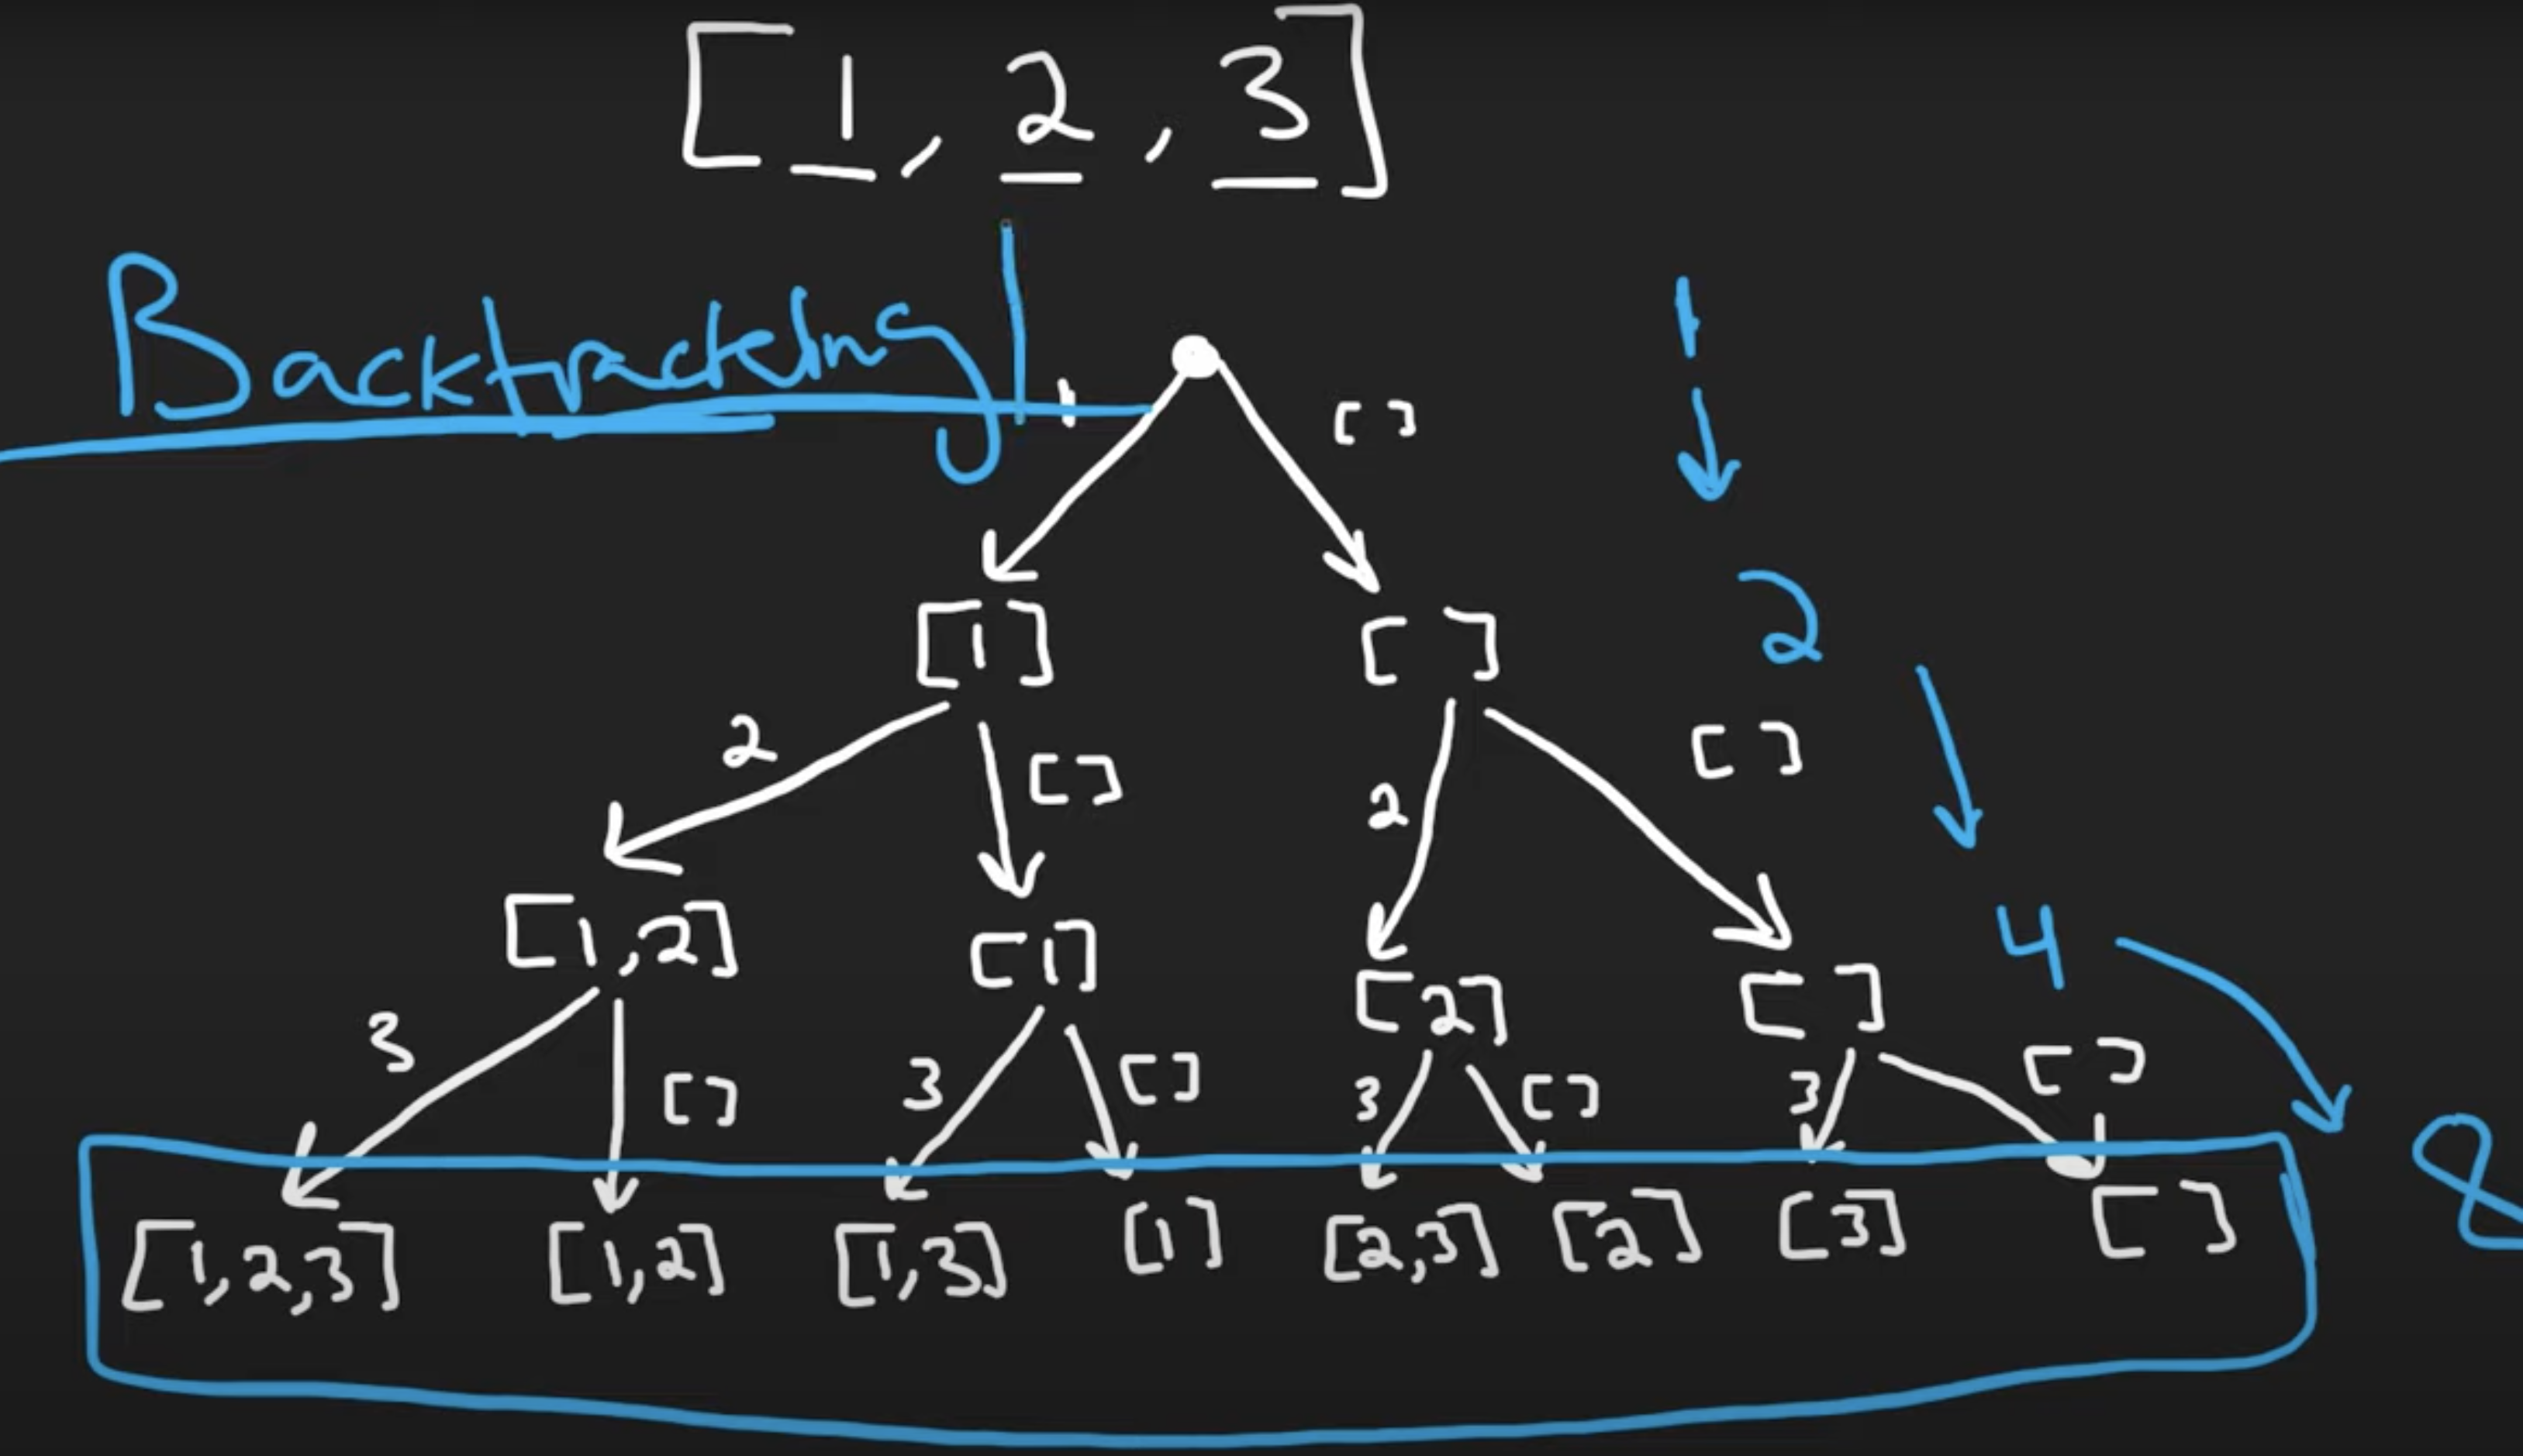 [1, 2, 3]
Backtracking
1
1 []
[1] [ ]
2
2 [] 2 []
[1,2] [1] [2] [ ]
4
3 [] 3 [] 3 [] 3 [ ]
8
[1,2,3] [1,2] [1,3] [1] [2,3] [2] [3] [ ]